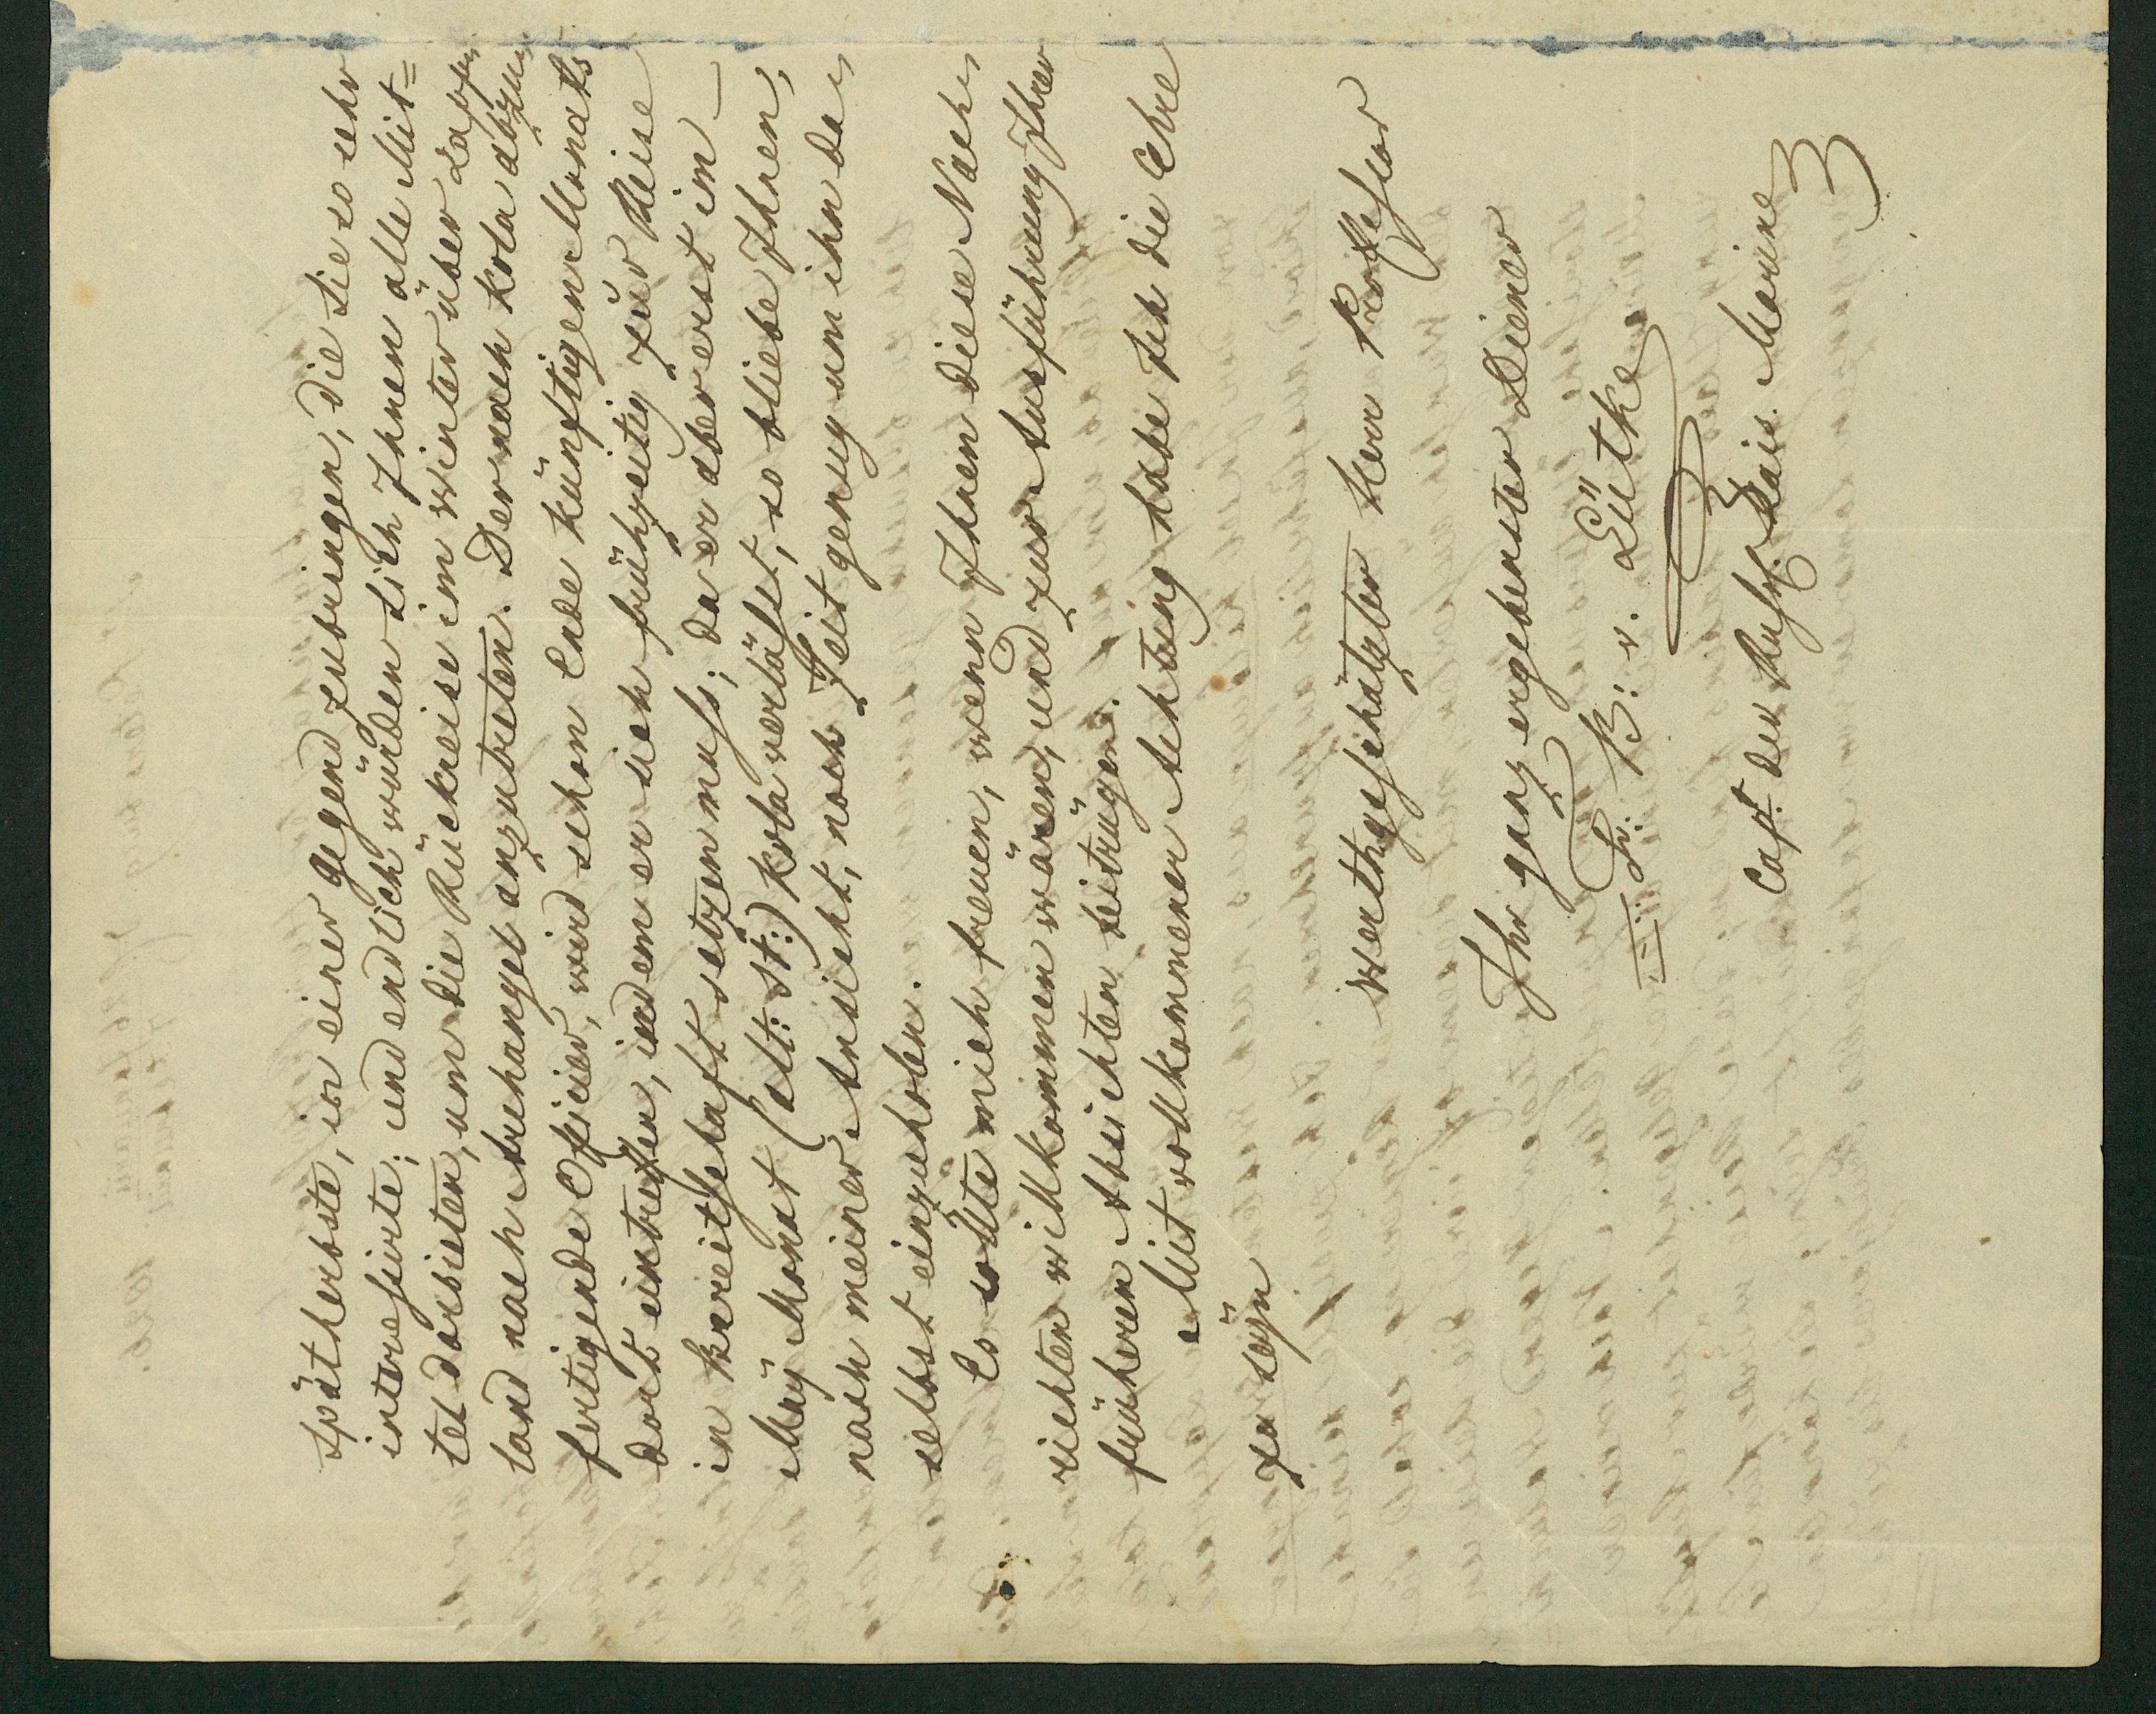 Spätherbste, in einer Gegend zubringen, die Sie so sehr
interessirte; und endlich würden sich Ihnen alle Mit=
tel darbieten, um die Rückreise im Winter über Lapp
land nach Archangel anzutreten. Der nach Kola abzu
fertigende Officier, wird schon Ende künftigen Monats
dort eintreffen, indem er sich frühzeitig zur Reise
in Bereitschaft setzen muss; da er aber erst im
May Monat (alt: St:) Kola verlässt, so bliebe Ihnen,
nach meiner Ansicht, noch Zeit genug um ihn da
selbst einzuholen.
Es sollte mich freuen, wenn Ihnen diese Nach
richten willkommen wären, und zur Ausführung Ihrer
früheren Absichten beitrügen.
Mit vollkommener Achtung habe ich die Ehre
zu seÿn
Werthgeschätzter Herr Professor
Ihr ganz ergebenster Diener
Fr: B: v. Lütke
Capt. der Russ. Kais. Marine